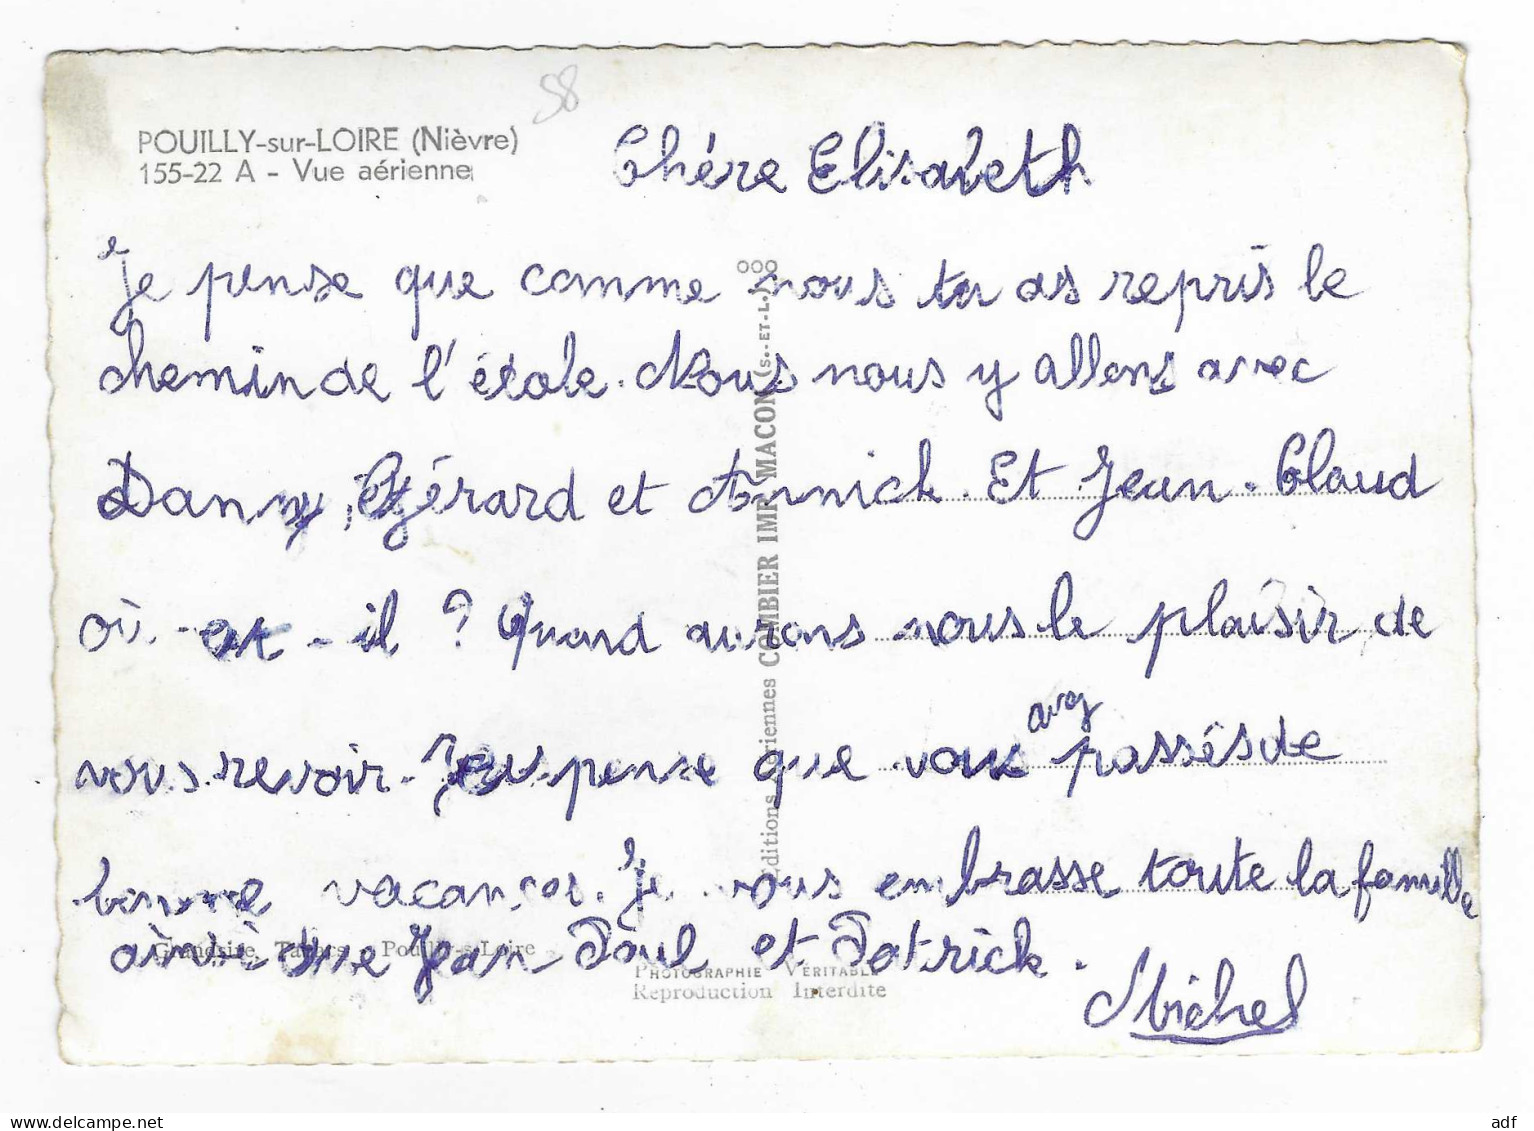 58
POUILLY-sur-LOIRE (Nièvre)
155-22 A - Vue aérienne
Chére Elisabeth
Je pense que comme nous tu as repris le
chemin de l'école. Nous nous y allons avec
Danny, Gérard et Annick. Et Jean-Claud
où-est-il ? Quand aurons nous le plaisir de
vous revoir. Je pense que vous avez passés de
bonne vacances. Je vous embrasse toute la famille
ainsi que Jean-Paul et Patrick.
Michel
Editions aériennes COMBIER IMP. MACON (S.-ET-L.) OOO
Grandsire, Tabacs - Pouilly-s-Loire
PHOTOGRAPHIE VÉRITABLE
Reproduction Interdite
adf